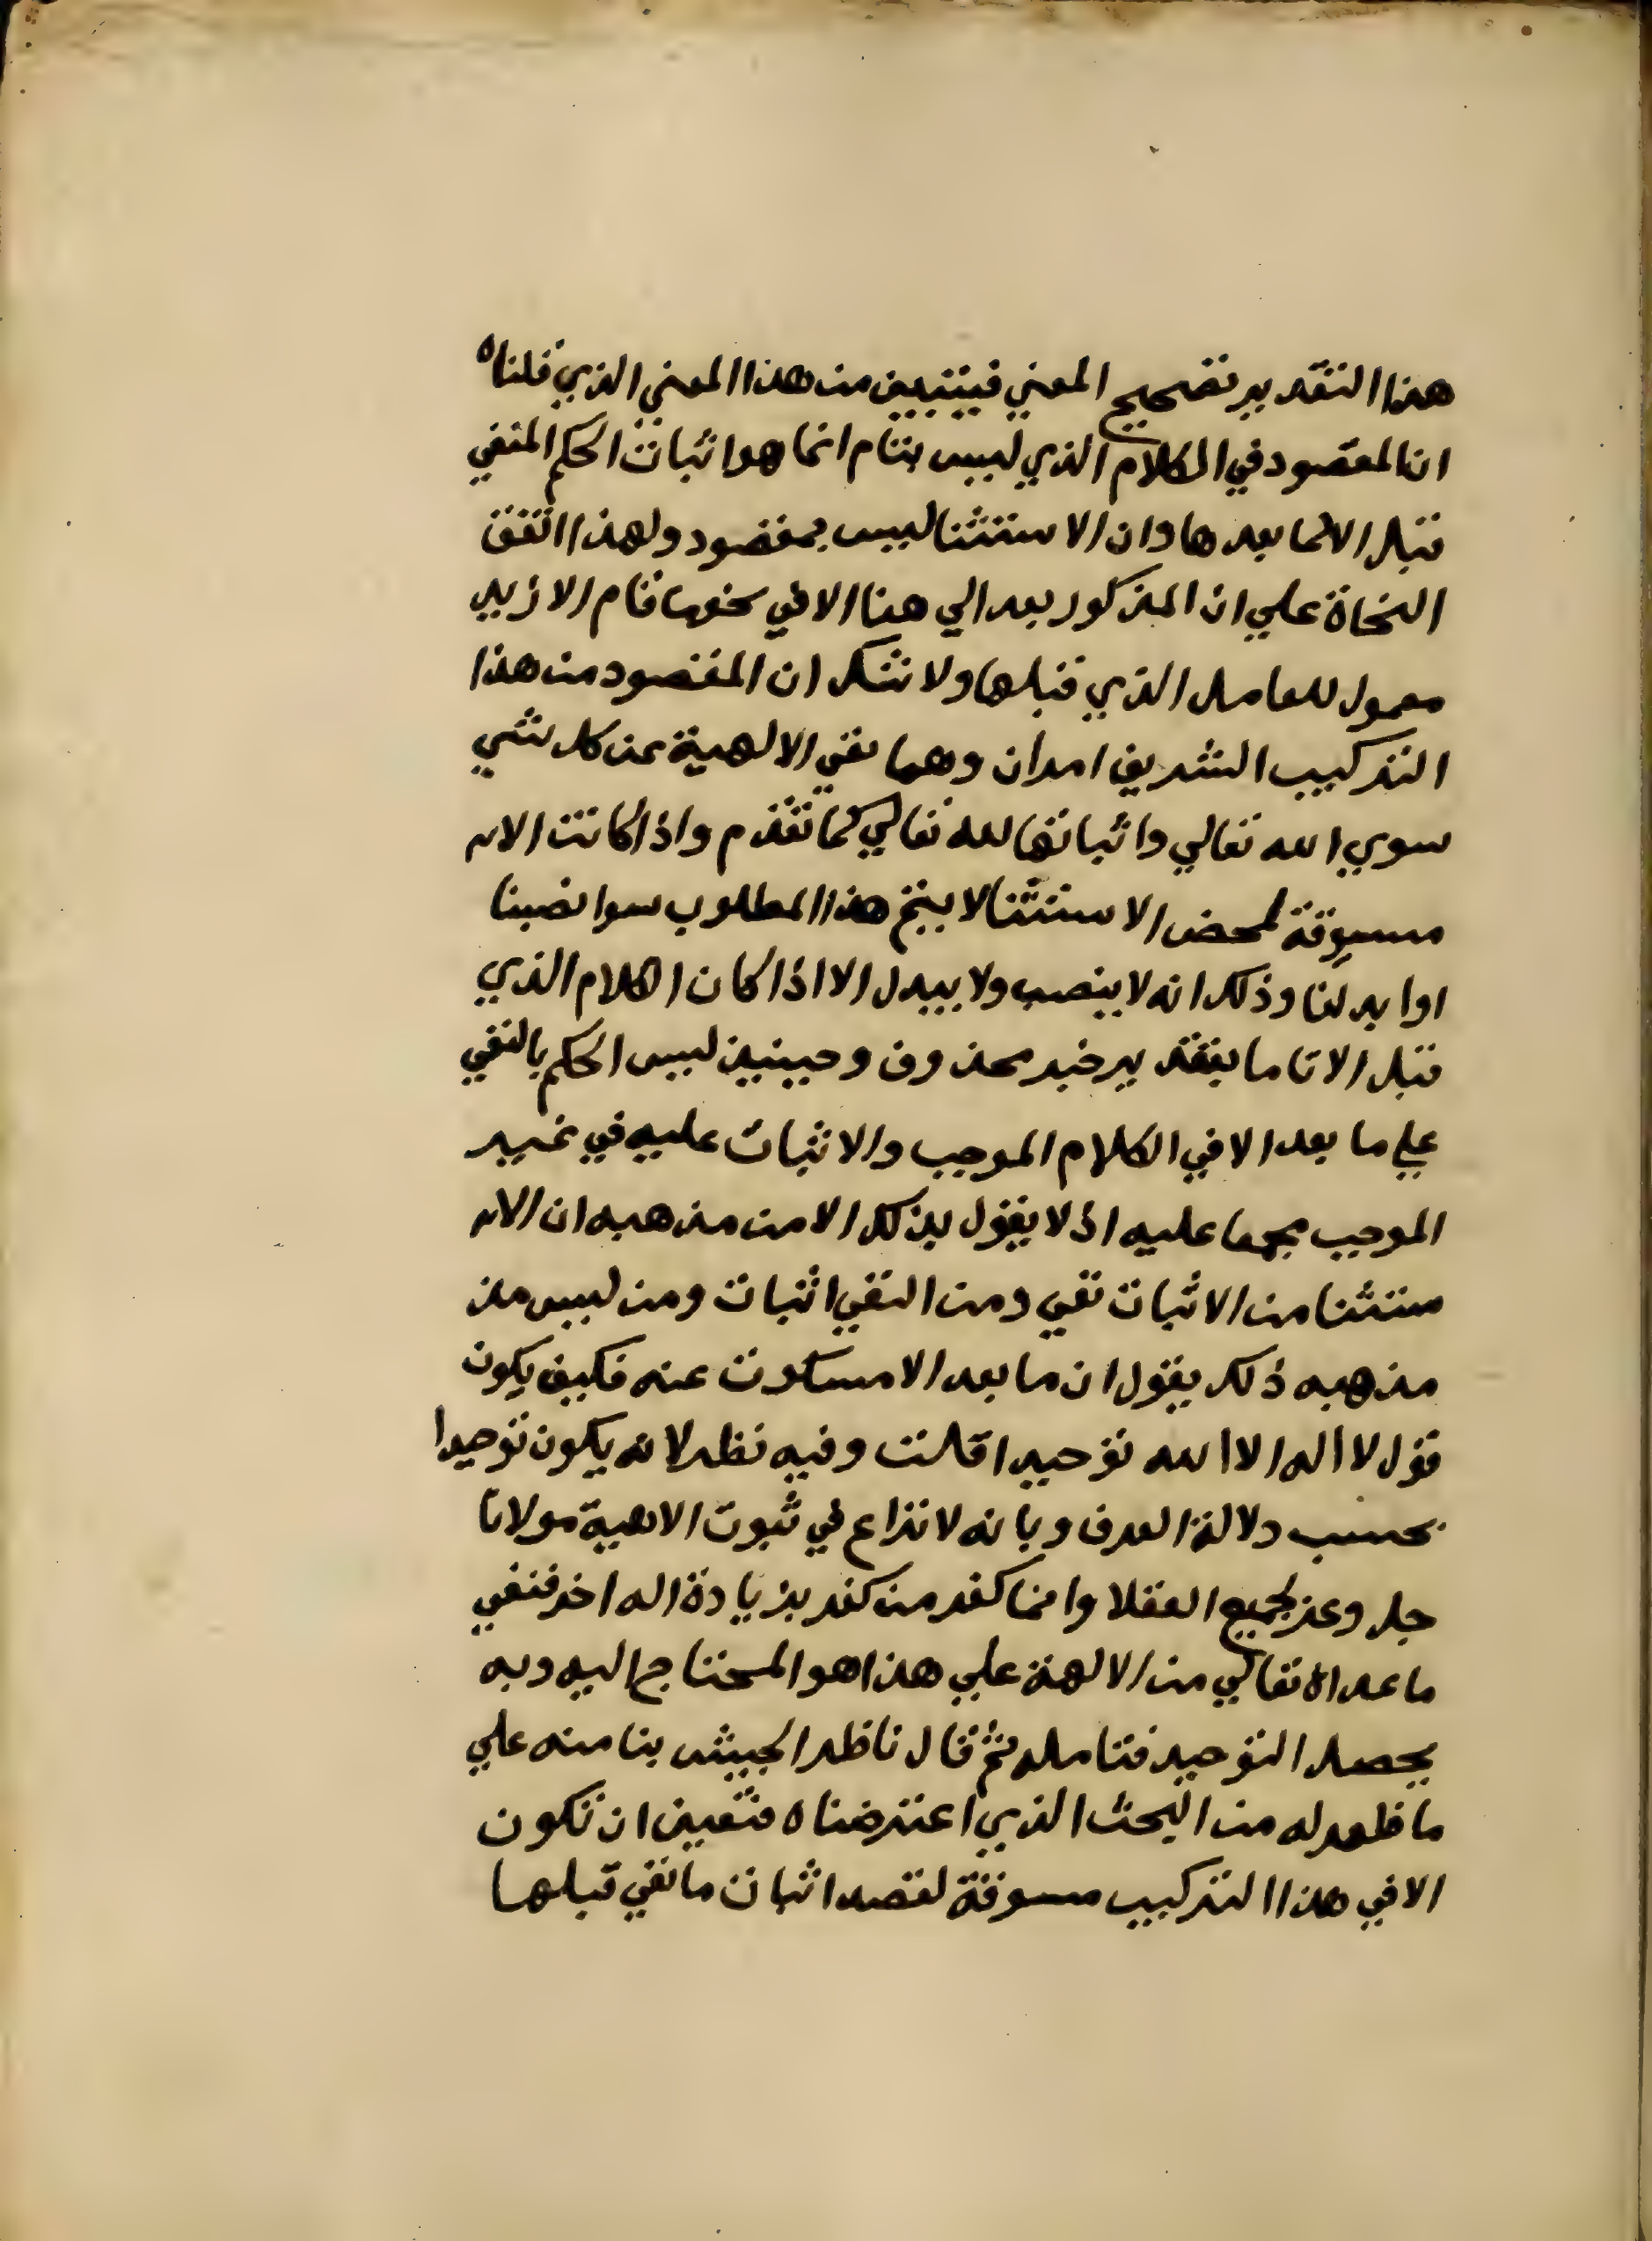 هذا التقدير تصحيح المعني فيتبين من هذا المعني الذي قلناه
ان المقصود في الكلام الذي ليس بتام انما هو اثبات الحكم المنفي
قبل الا لما بعدها وان الاستثنا ليس بمقصود ولهذا اتفق
النحاة علي ان المذكور بعد الي هنا الا في نحو ما قام الا زيد
معمول للعامل الذي قبلها ولا شك ان المقصود من هذا
التركيب الشريف امران وهما نفي الالهية عن كل شي
سوي الله تعالي واثباتها لله تعالي كما تقدم واذا كانت الا
مسوقة لمحض الاستثنا لا يتم هذا المطلوب سوا نصبنا
او ابدلنا وذلك انه لا ينصب ولا يبدل الا اذا كان الكلام الذي
قبل الا تاما بتقدير خبر محذوف وحينيذ ليس الحكم بالنفي
علي ما بعد الا في الكلام الموجب والاثبات عليه في غير
الموجب مجمعا عليه اذ لا يقول بذلك الا من مذهبه ان الا
ستثنا من الاثبات نفي ومن النفي اثبات ومن ليس من
مذهبه ذلك يقول ان ما بعد الا مسكوت عنه فكيف يكون
قول لا اله الا الله توحيدا قلت وفيه نظر لانه يكون توحيدا
بحسب دلالة العرف وبانه لا نزاع في ثبوت الاهية مولانا
جل وعز لجميع العقلا وانما كفر من كفر بزيادة اله اخر فنفي
ما عداه تعالي من الالهة علي هذا هو المحتاج اليه وبه
يحصل التوحيد فتامله ثم قال ناظر الجيش بنا منه علي
ما ظهر له من البحث الذي اعترضناه فتعين ان تكون
الا في هذا التركيب مسوقة لقصد اثبات ما نفي قبلها